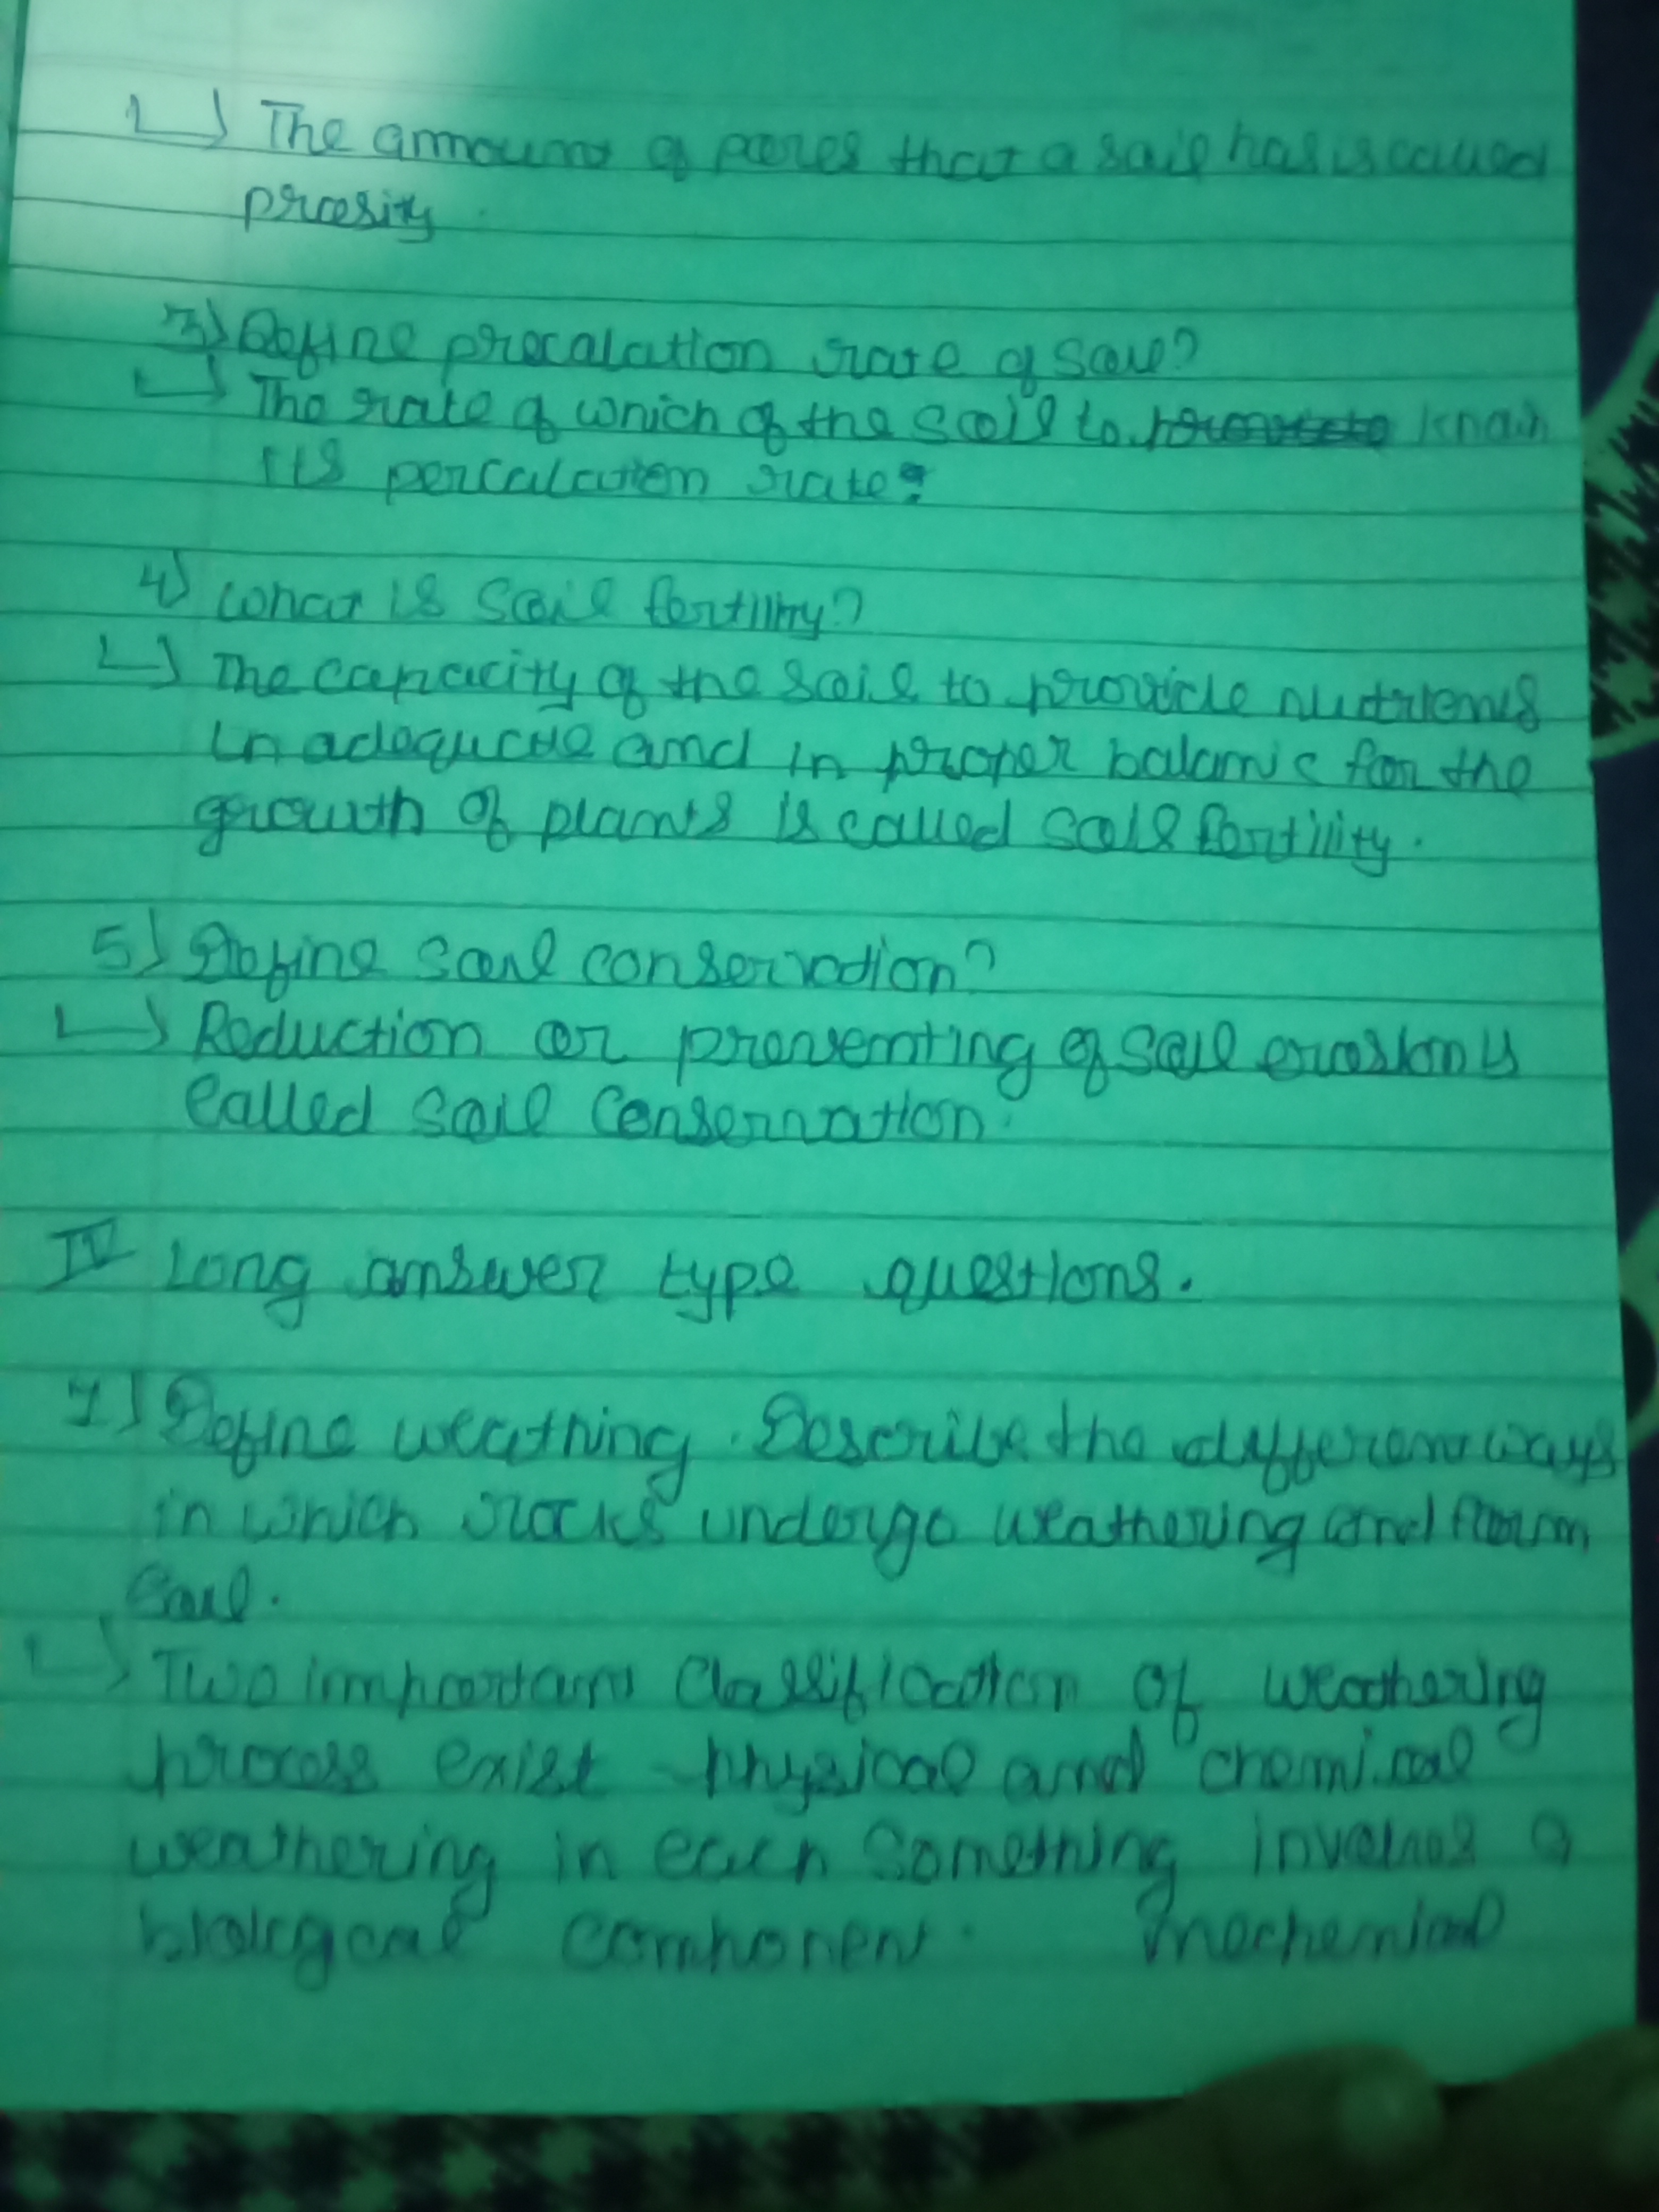 The ammount of pores that a soil has is called
prosity.
3) Define precalation rate of soil?
The rate of which of the soil to know
its percalation rate?
4) What is soil fertility?
The capacity of the soil to provide nutrients
in adequate and in proper balanc for the
growth of plants is called soil fertility.
5) Define soil conservation?
Reduction or preventing of soil erosion is
called soil conservation.
IV Long answer type questions.
1) Define weathing. Describe the different ways
in which rocks undergo weathering and form
soil.
Two important classification of weathering
process exist physical and chemical
weathering in each something involves a
biologcal component. mechemical